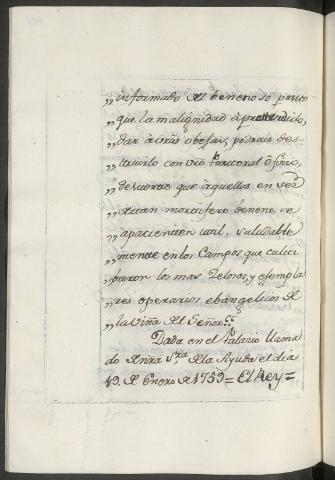 „informado del benenoso pasto
„que la malignidad à pretendido,
„dar à esas obejas, podrais des-
„truirlo con vro Pastoral oficio,
„desuerte que àquellas en vez
„de tan mortifero beneno, se
„apacienten util, y saludable
„mente en los Campos que culti-
„baron los mas zelosos, y exempla
„res operarios ebangelicos de
„la Viña del Señor.“
Dada en el Palacio llama
do Nra Sra. de la Ayuda el dia
19. de Enero de 1759 = El Rey =